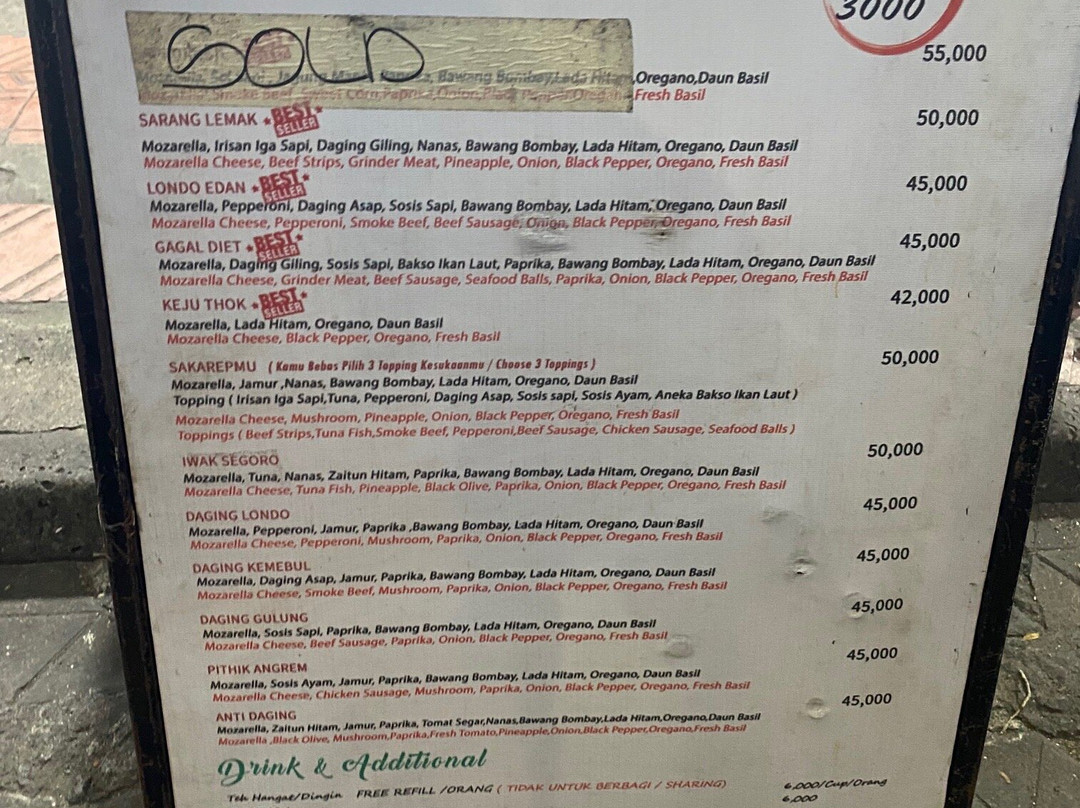 3000
SOLD
BEST SELLER
55,000
Mozarella, Bawang Bombay,Lada Hitam,Oregano,Daun Basil
Smoke Beef, Sweet Corn,Paprika,Onion,Black Pepper,Oregano, Fresh Basil
SARANG LEMAK BEST SELLER 50,000
Mozarella, Irisan Iga Sapi, Daging Giling, Nanas, Bawang Bombay, Lada Hitam, Oregano, Daun Basil
Mozarella Cheese, Beef Strips, Grinder Meat, Pineapple, Onion, Black Pepper, Oregano, Fresh Basil
LONDO EDAN BEST SELLER 45,000
Mozarella, Pepperoni, Daging Asap, Sosis Sapi, Bawang Bombay, Lada Hitam, Oregano, Daun Basil
Mozarella Cheese, Pepperoni, Smoke Beef, Beef Sausage, Onion, Black Pepper, Oregano, Fresh Basil
GAGAL DIET BEST SELLER 45,000
Mozarella, Daging Giling, Sosis Sapi, Bakso Ikan Laut, Paprika, Bawang Bombay, Lada Hitam, Oregano, Daun Basil
Mozarella Cheese, Grinder Meat, Beef Sausage, Seafood Balls, Paprika, Onion, Black Pepper, Oregano, Fresh Basil
KEJU THOK BEST SELLER 42,000
Mozarella, Lada Hitam, Oregano, Daun Basil
Mozarella Cheese, Black Pepper, Oregano, Fresh Basil
SAKAREPMU ( Kamu Bebas Pilih 3 Topping Kesukaanmu / Choose 3 Toppings ) 50,000
Mozarella, Jamur ,Nanas, Bawang Bombay, Lada Hitam, Oregano, Daun Basil
Topping ( Irisan Iga Sapi,Tuna, Pepperoni, Daging Asap, Sosis sapi, Sosis Ayam, Aneka Bakso Ikan Laut )
Mozarella Cheese, Mushroom, Pineapple, Onion, Black Pepper, Oregano, Fresh Basil
Toppings ( Beef Strips,Tuna Fish,Smoke Beef, Pepperoni,Beef Sausage, Chicken Sausage, Seafood Balls )
IWAK SEGORO 50,000
Mozarella, Tuna, Nanas, Zaitun Hitam, Paprika, Bawang Bombay, Lada Hitam, Oregano, Daun Basil
Mozarella Cheese, Tuna Fish, Pineapple, Black Olive, Paprika, Onion, Black Pepper, Oregano, Fresh Basil
DAGING LONDO 45,000
Mozarella, Pepperoni, Jamur, Paprika ,Bawang Bombay, Lada Hitam, Oregano, Daun Basil
Mozarella Cheese, Pepperoni, Mushroom, Paprika, Onion, Black Pepper, Oregano, Fresh Basil
DAGING KEMEBUL 45,000
Mozarella, Daging Asap, Jamur, Paprika, Bawang Bombay, Lada Hitam, Oregano, Daun Basil
Mozarella Cheese, Smoke Beef, Mushroom, Paprika, Onion, Black Pepper, Oregano, Fresh Basil
DAGING GULUNG 45,000
Mozarella, Sosis Sapi, Paprika, Bawang Bombay, Lada Hitam, Oregano, Daun Basil
Mozarella Cheese, Beef Sausage, Paprika, Onion, Black Pepper, Oregano, Fresh Basil
PITHIK ANGREM 45,000
Mozarella, Sosis Ayam, Jamur, Paprika, Bawang Bombay, Lada Hitam, Oregano, Daun Basil
Mozarella Cheese, Chicken Sausage, Mushroom, Paprika, Onion, Black Pepper, Oregano, Fresh Basil
ANTI DAGING 45,000
Mozarella, Zaitun Hitam, Jamur, Paprika, Tomat Segar,Nanas,Bawang Bombay,Lada Hitam,Oregano,Daun Basil
Mozarella ,Black Olive, Mushroom,Paprika,Fresh Tomato,Pineapple,Onion,Black Pepper,Oregano,Fresh Basil
Drink & Additional
Teh Hangat/Dingin FREE REFILL /ORANG ( TIDAK UNTUK BERBAGI / SHARING) 6,000/Cup/Orang
6,000